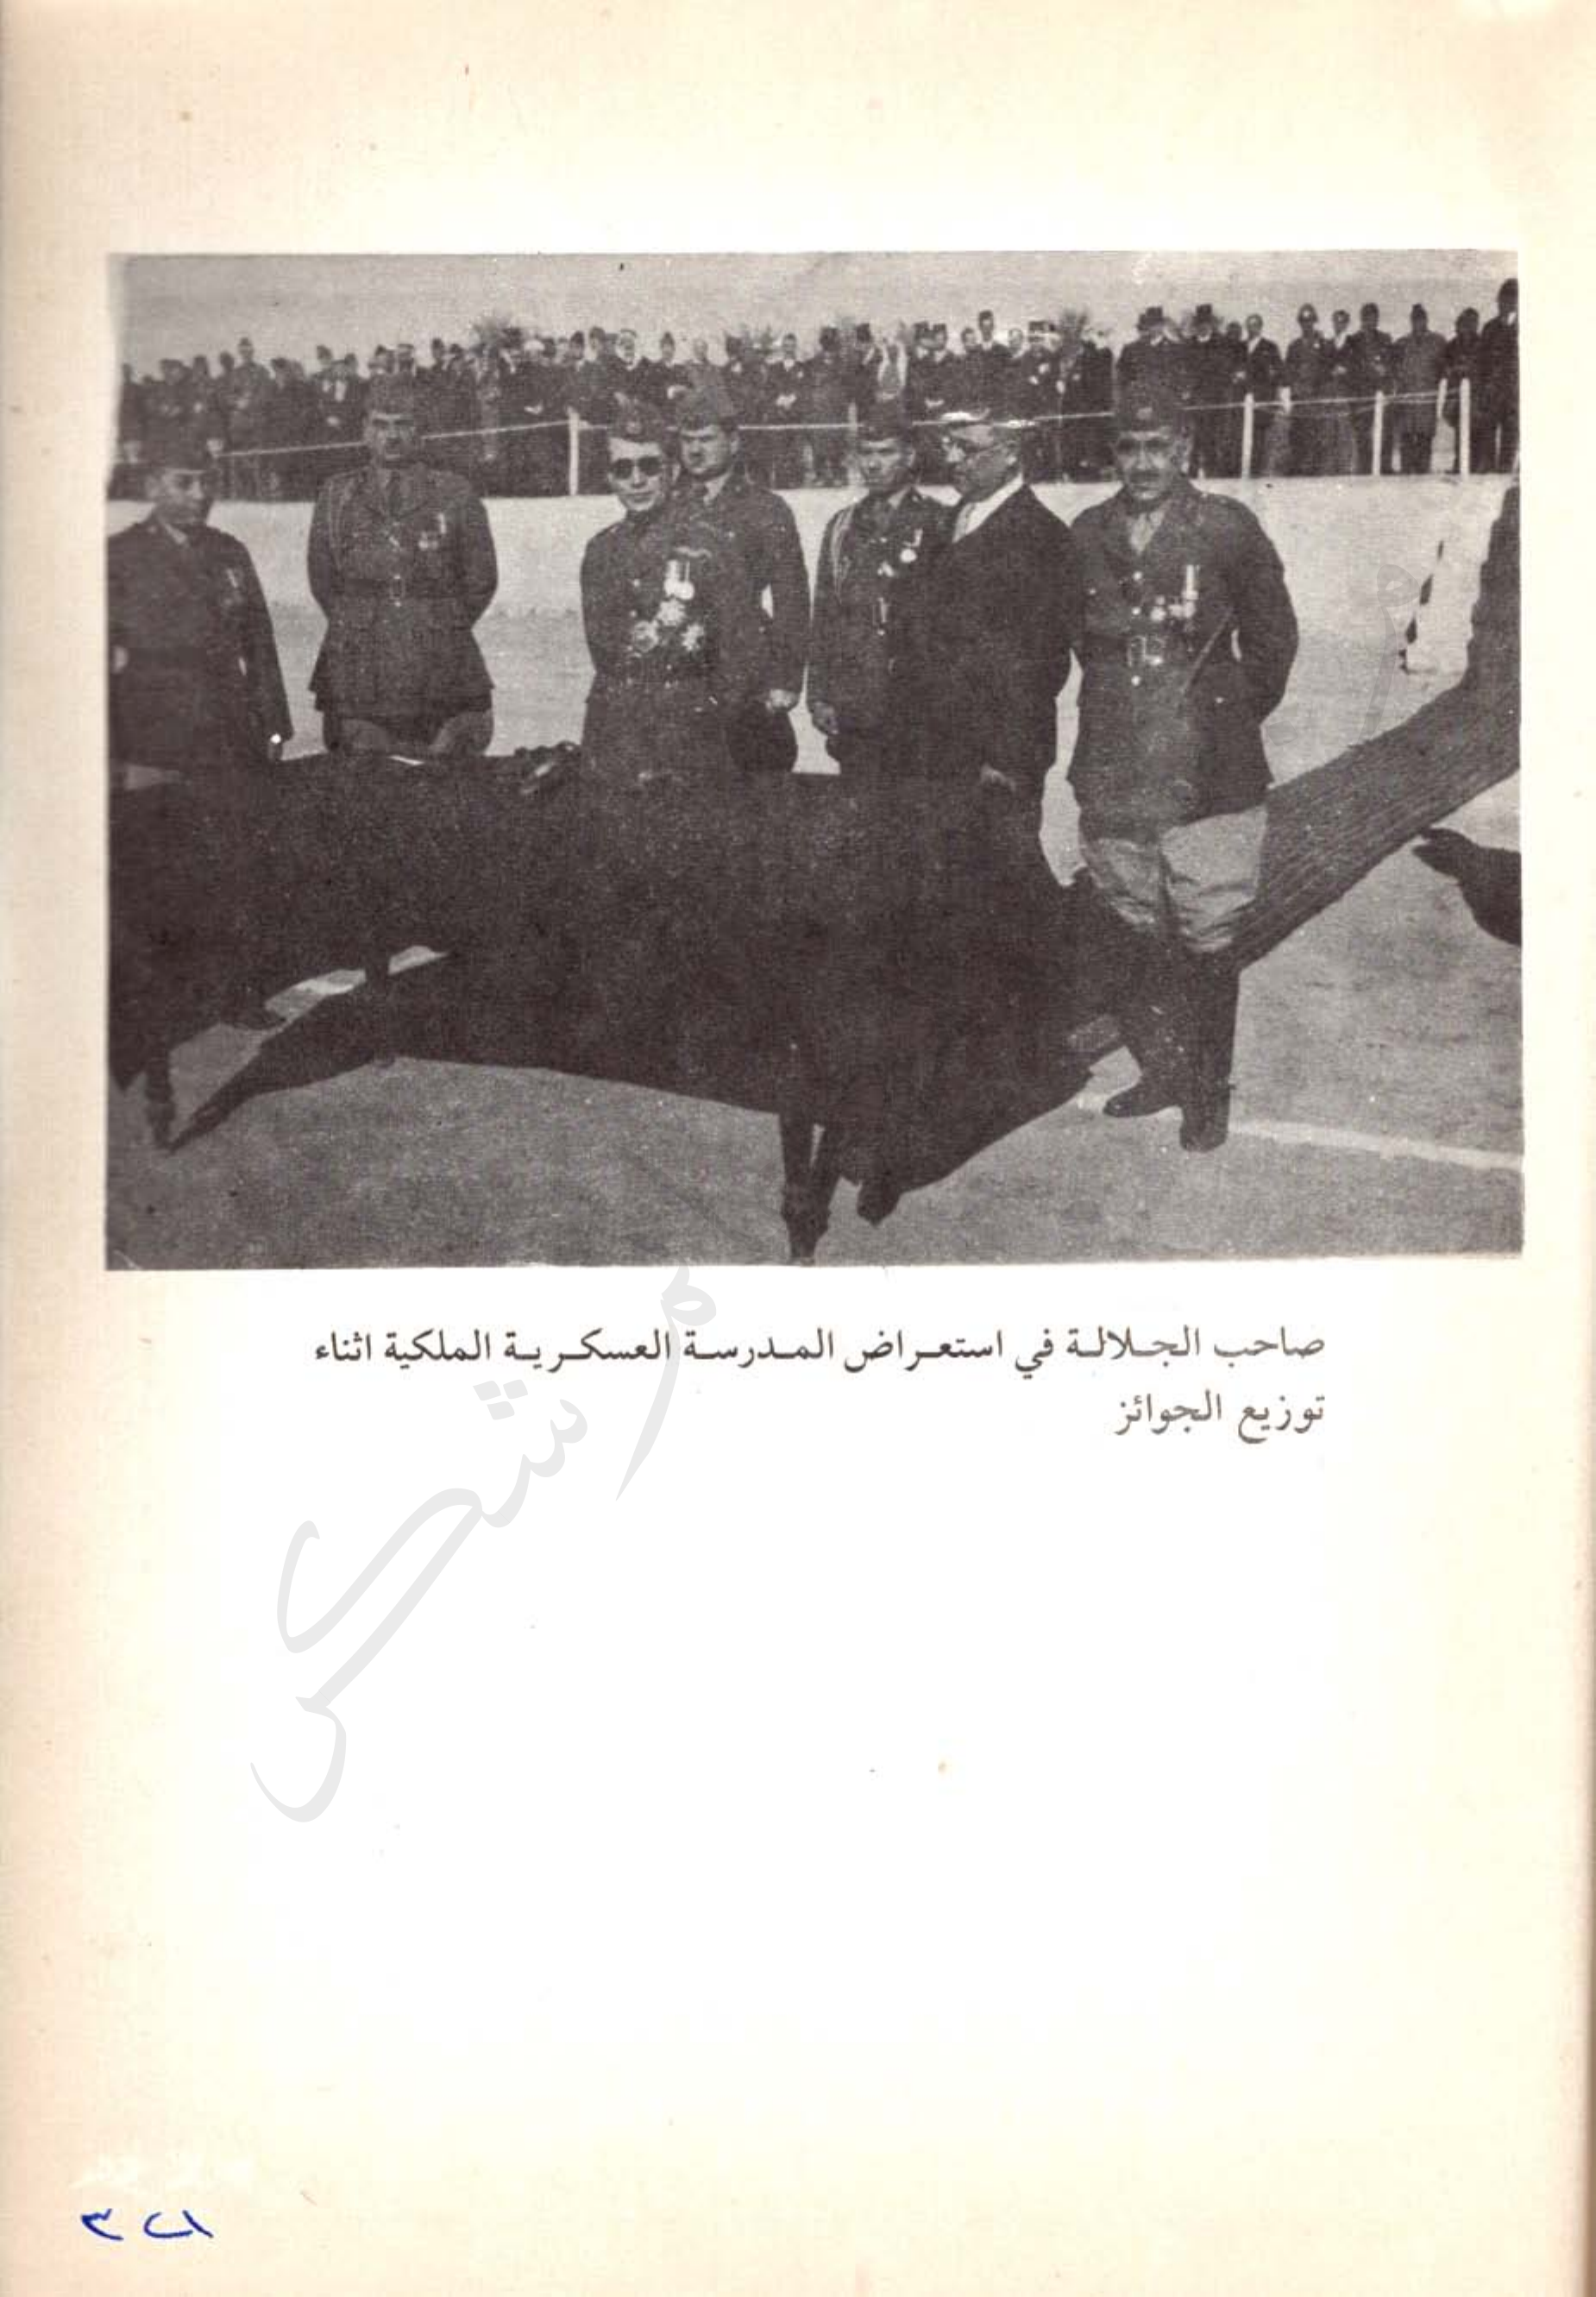 صاحب الجلالة في استعراض المدرسة العسكرية الملكية اثناء
توزيع الجوائز